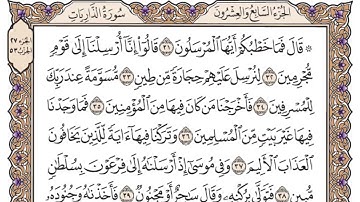 الجزء السابع والعشرون
سورة الذاريات
۞ قَالَ فَمَا خَطْبُكُمْ أَيُّهَا ٱلْمُرْسَلُونَ ٣١ قَالُوٓا۟ إِنَّآ أُرْسِلْنَآ إِلَىٰ قَوْمٍ
مُّجْرِمِينَ ٣٢ لِنُرْسِلَ عَلَيْهِمْ حِجَارَةً مِّن طِينٍ ٣٣ مُّسَوَّمَةً عِندَ رَبِّكَ
لِلْمُسْرِفِينَ ٣٤ فَأَخْرَجْنَا مَن كَانَ فِيهَا مِنَ ٱلْمُؤْمِنِينَ ٣٥ فَمَا وَجَدْنَا
فِيهَا غَيْرَ بَيْتٍ مِّنَ ٱلْمُسْلِمِينَ ٣٦ وَتَرَكْنَا فِيهَآ ءَايَةً لِّلَّذِينَ يَخَافُونَ
ٱلْعَذَابَ ٱلْأَلِيمَ ٣٧ وَفِى مُوسَىٰٓ إِذْ أَرْسَلْنَٰهُ إِلَىٰ فِرْعَوْنَ بِسُلْطَٰنٍ
مُّبِينٍ ٣٨ فَتَوَلَّىٰ بِرُكْنِهِۦ وَقَالَ سَٰحِرٌ أَوْ مَجْنُونٌ ٣٩ فَأَخَذْنَٰهُ وَجُنُودَهُۥ